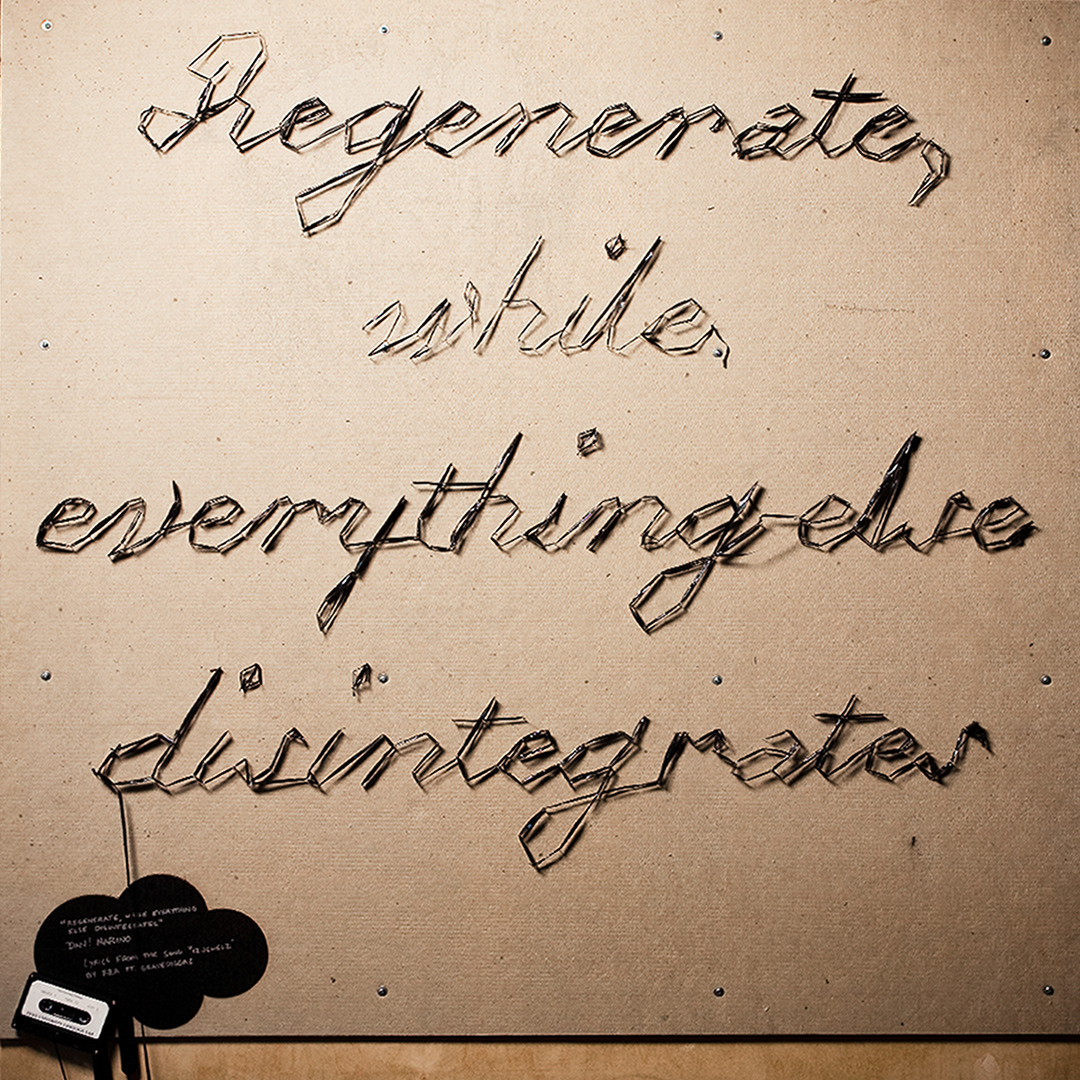 Regenerate,
while,
everything else
disintegrates
"REGENERATE, WHILE EVERYTHING
ELSE DISINTEGRATES"
DAN! MARINO
LYRICS FROM THE SONG "12 JEWELZ"
BY RZA FT. GRAVEDIGGAZ